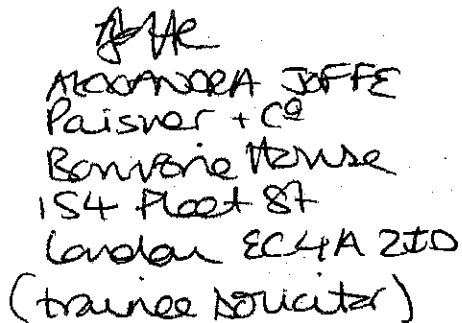 ALEXANDRA JOFFE
Paisner + Co
Bouverie House
154 Fleet St
London EC4A 2JD
(trainee solicitor)